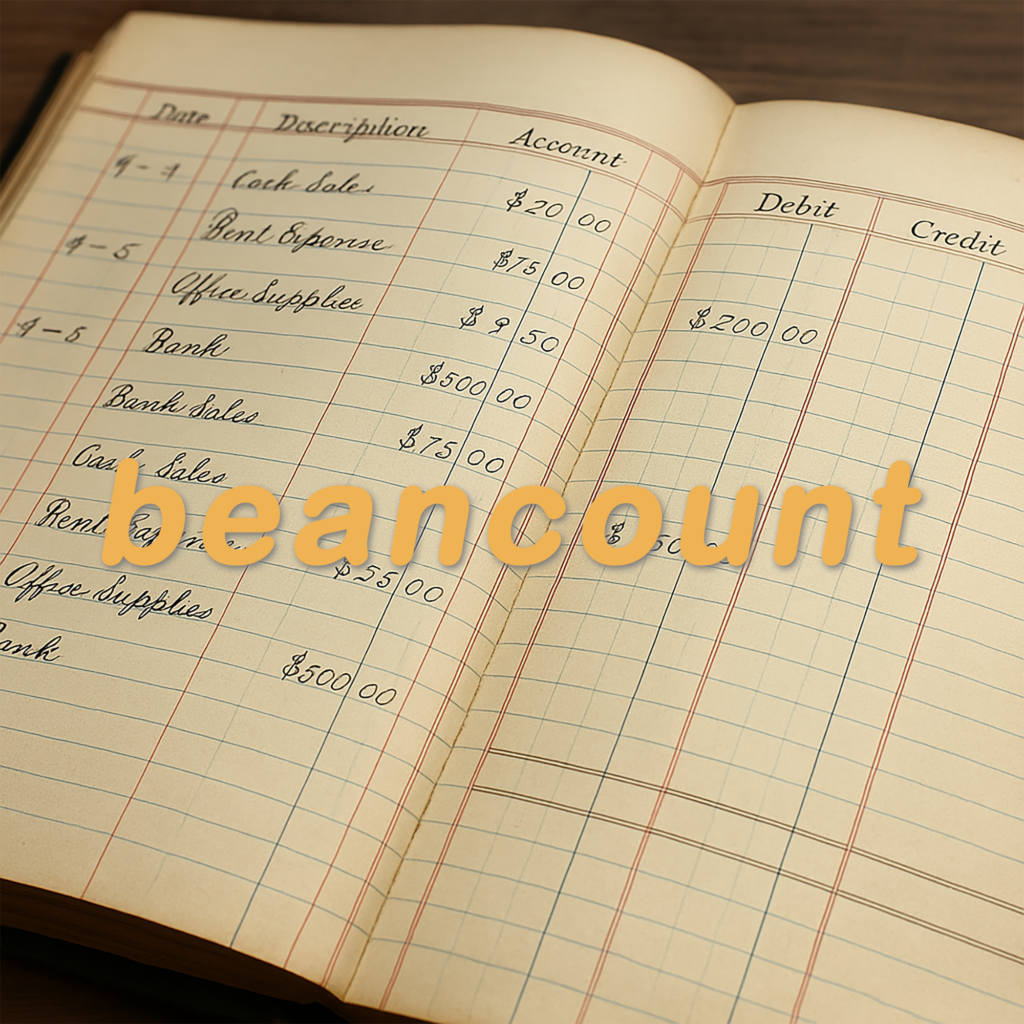 Date Description Account Debit Credit
9-4 Cock Sales $20 00
Rent Expense $75 00
9-5 Office Supplies $9 50 $200 00
9-5 Bank $500 00
Bank Sales $75 00
Cash Sales
beancount
Rent $55 00
Office Supplies
Bank $500 00